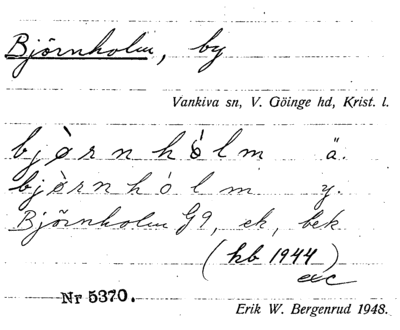 Björnholm, by
Vankiva sn, V. Göinge hd, Krist. l.
bjὸrnhólm ä.
bjὸrnhólm y.
Björnholm G9, ek, bek
(hb 1944)
exc
Nr 5370.
Erik W. Bergenrud 1948.